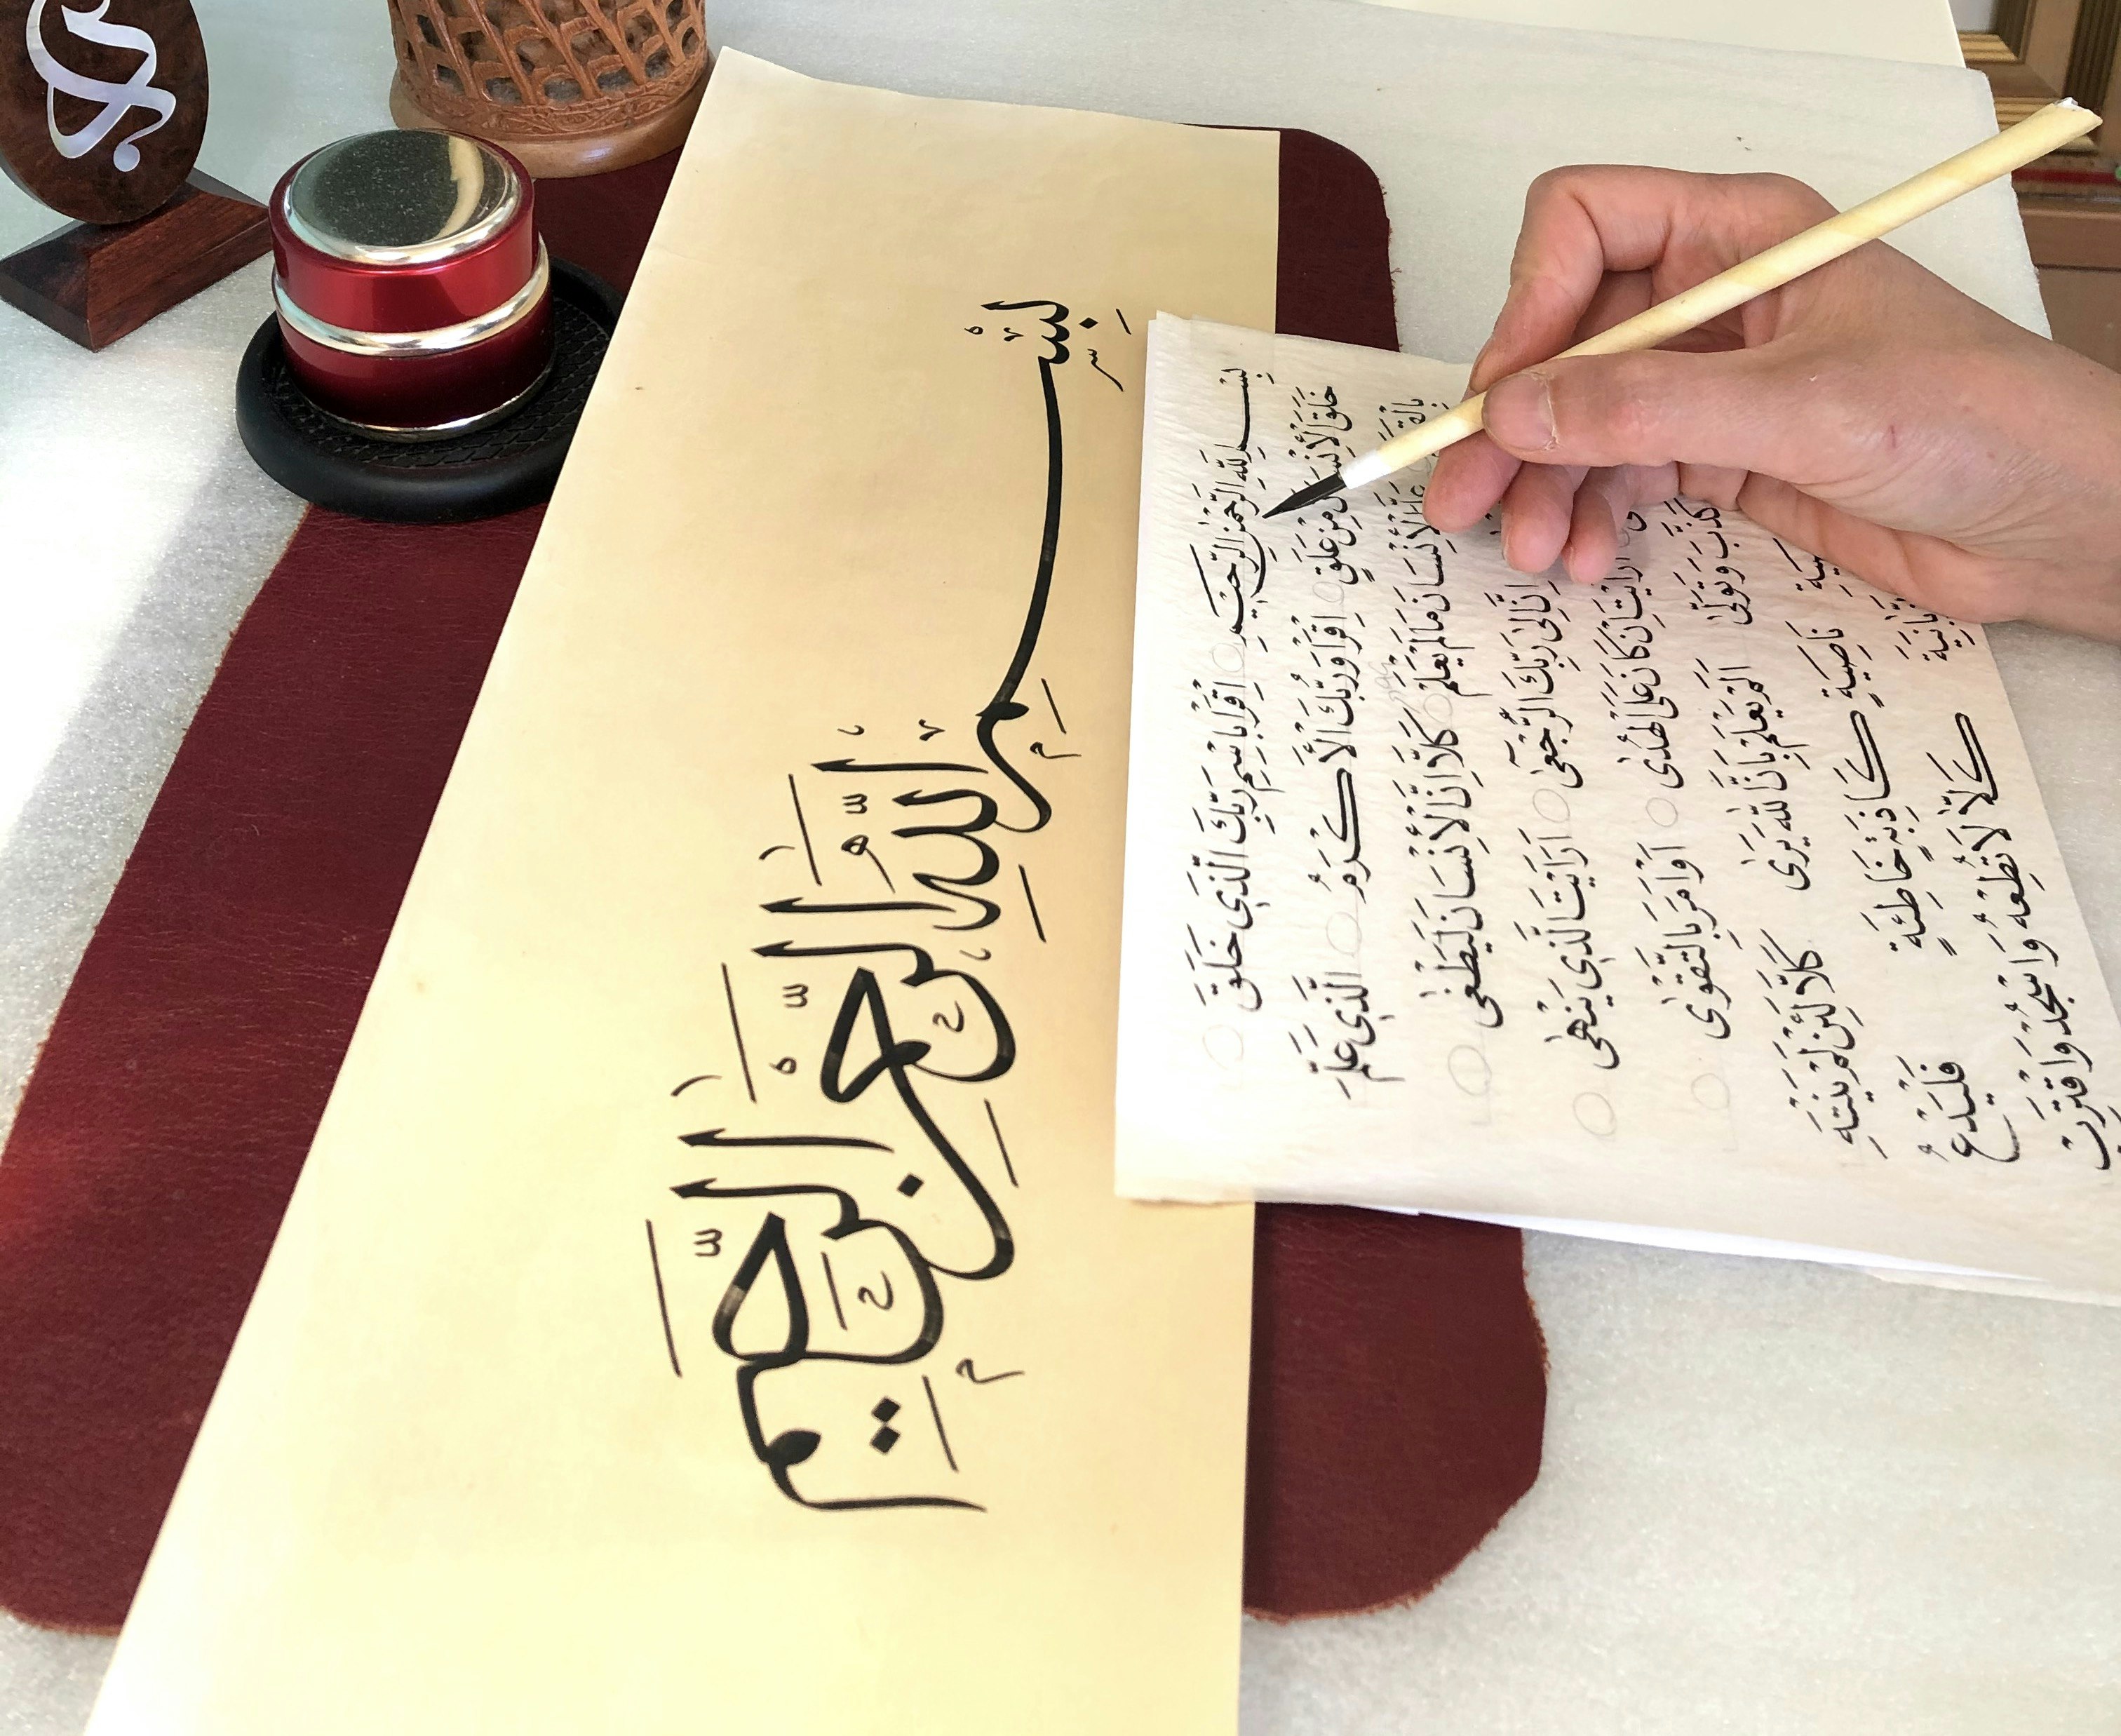 بِسْمِ اللّٰهِ الرَّحْمٰنِ الرَّحِيمِ
بِسْمِ اللّٰهِ الرَّحْمٰنِ الرَّحِيمِ اِقْرَاْ بِاسْمِ رَبِّكَ الَّذِي خَلَقَ
خَلَقَ الْاِنْسَانَ مِنْ عَلَقٍ اِقْرَاْ وَرَبُّكَ الْاَكْرَمُ الَّذِي عَلَّمَ
عَلَّمَ الْاِنْسَانَ مَا لَمْ يَعْلَمْ كَلَّا اِنَّ الْاِنْسَانَ لَيَطْغٰى
اِنَّ اِلٰى رَبِّكَ الرُّجْعٰى اَرَاَيْتَ الَّذِي يَنْهٰى
اَرَاَيْتَ اِنْ كَانَ عَلَى الْهُدٰى اَوْ اَمَرَ بِالتَّقْوٰى
كَذَّبَ وَتَوَلّٰى اَلَمْ يَعْلَمْ بِاَنَّ اللّٰهَ يَرٰى كَلَّا لَئِنْ لَمْ يَنْتَهِ
نَاصِيَةٍ كَاذِبَةٍ خَاطِئَةٍ فَلْيَدْعُ
كَلَّا لَا تُطِعْهُ وَاسْجُدْ وَاقْتَرِبْ